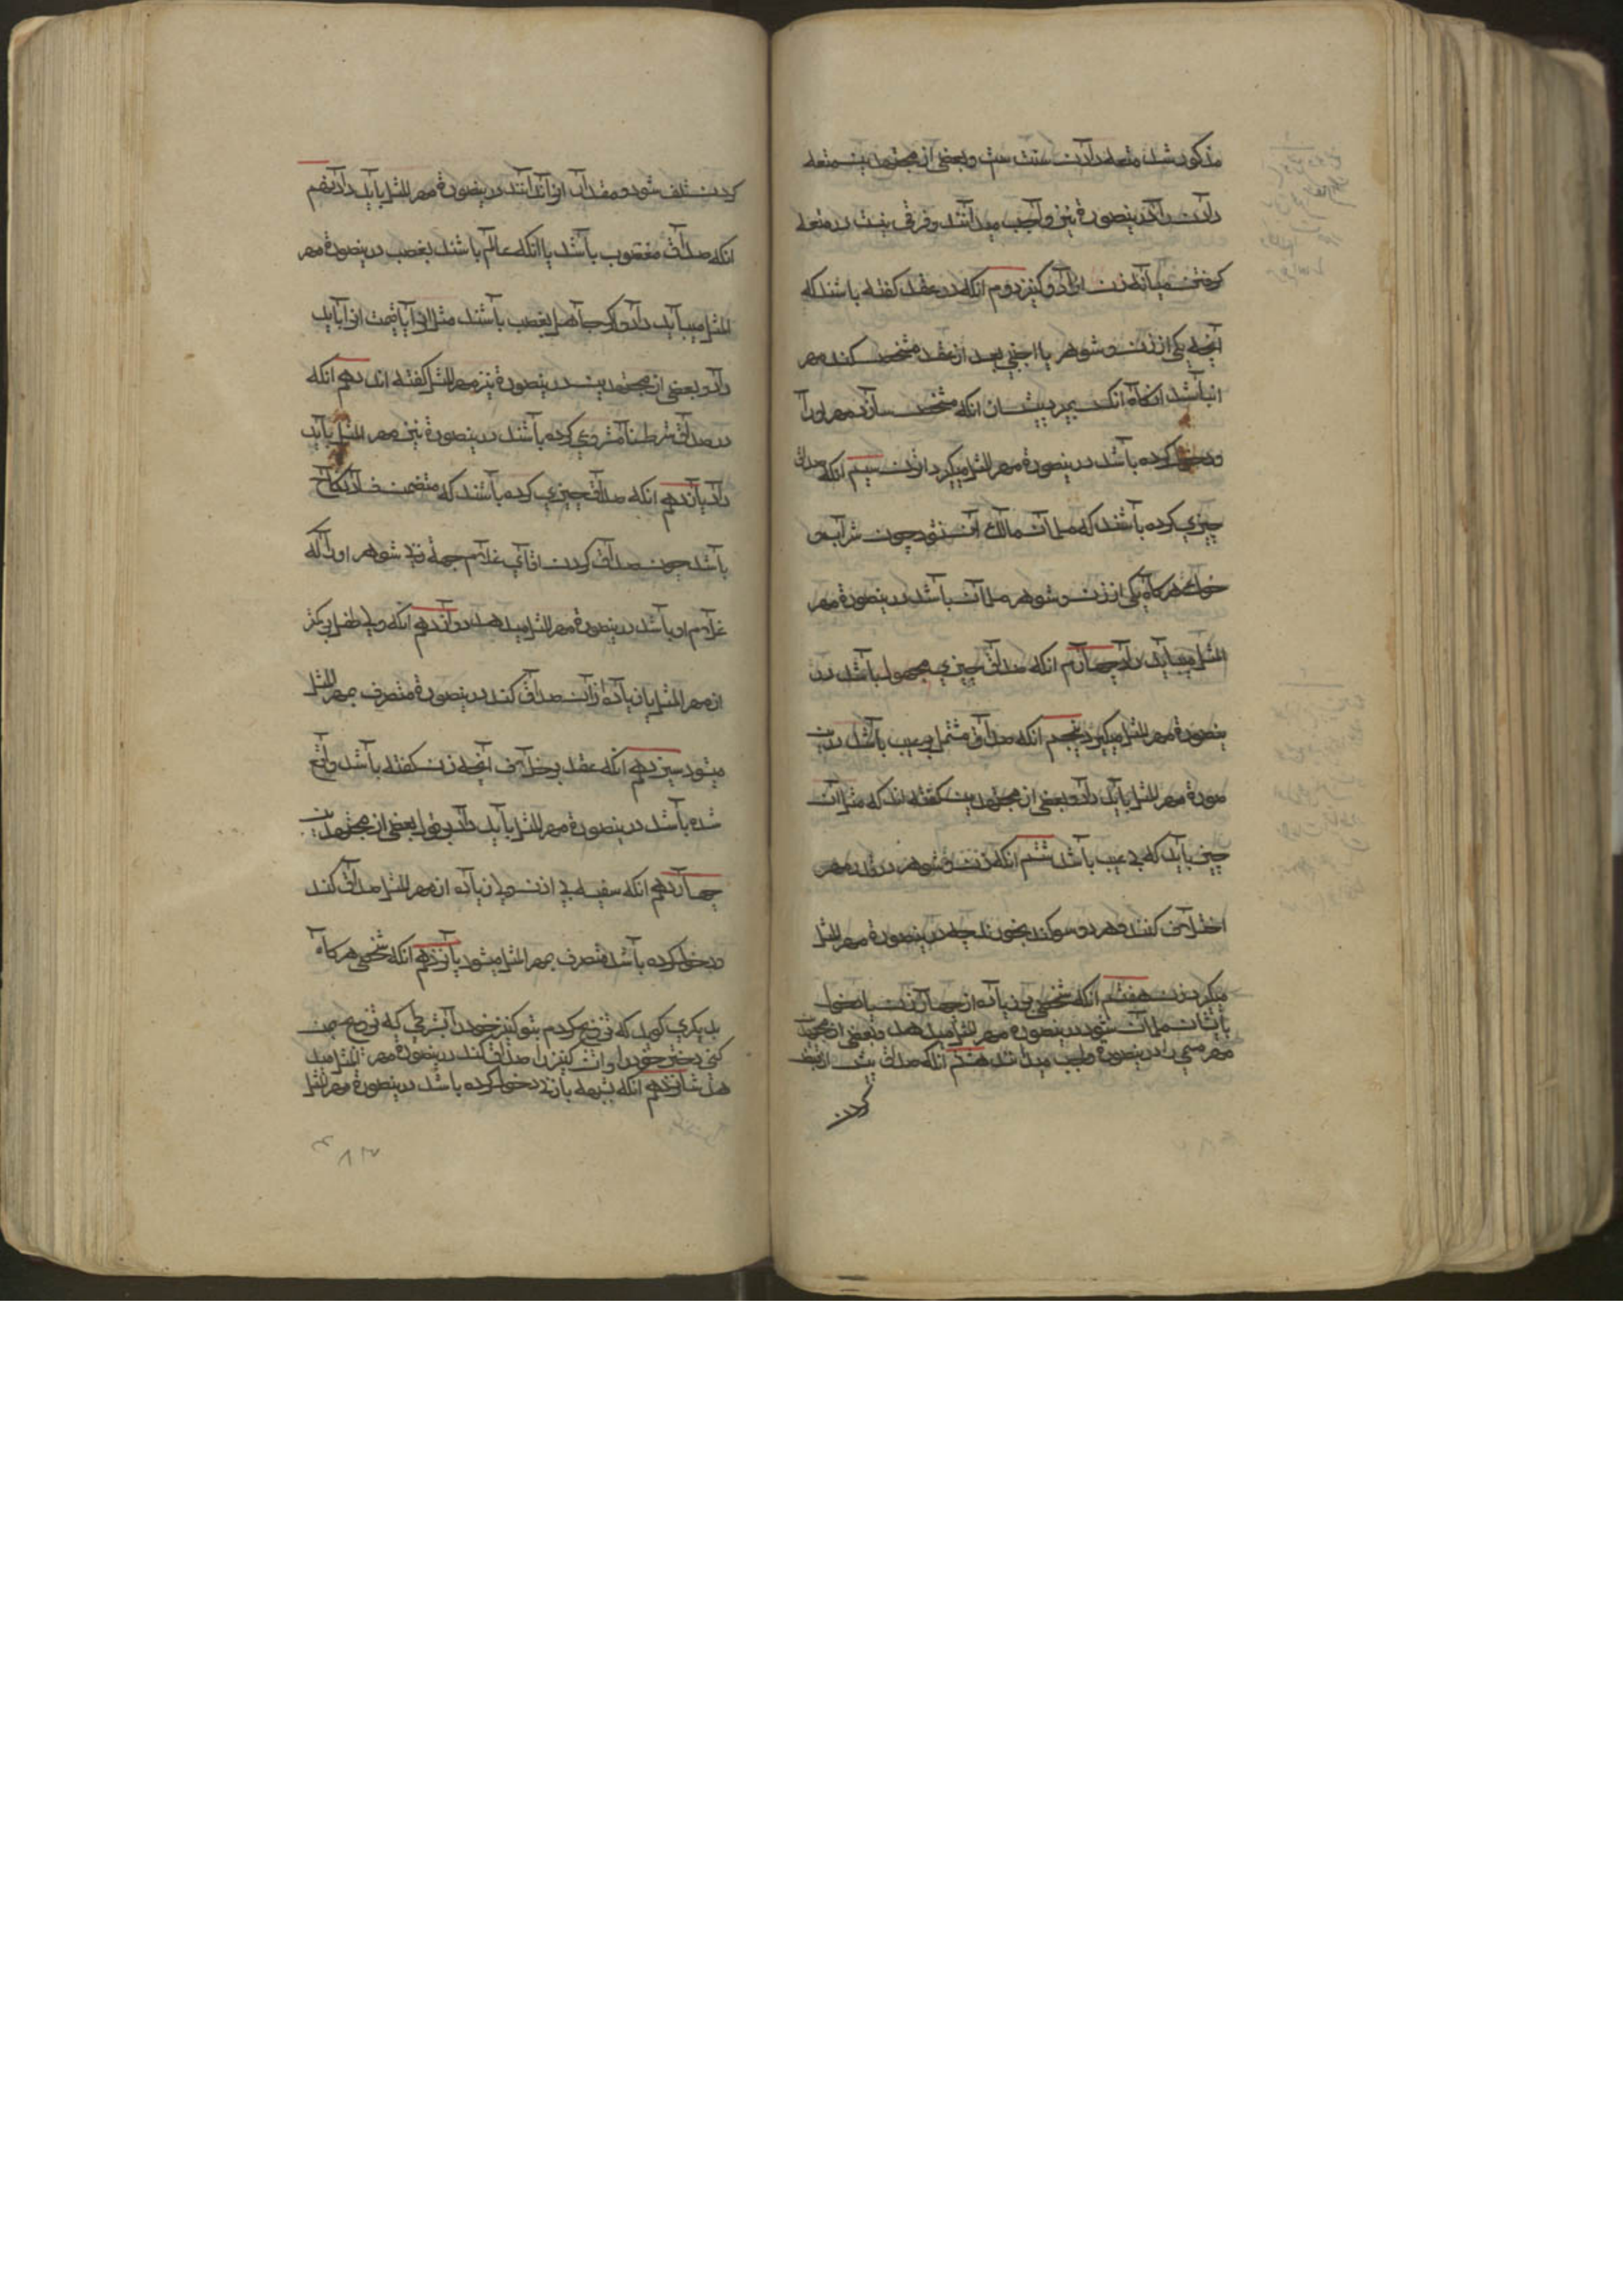 مذکور شد متعه دادن سنت ست و بعضی از مجتهدین متعه
دادن را درینصورة نیز واجب میدانند و فرقی نیست در متعه
کرفتن میانه زن ازاد و کنیز دوم انکه در عقد کفته باشند که
آنچه یکی از زن و شوهر یا اجنبی بعد از عقد مشخص کند مهر
ان باشد انکاه انکس بمیرد پیش از انکه مشخص سازد مهر او را
و دخول کرده باشد درینصورة مهر المثل میکیرد ازن سیم انکه صداق
چیزی کرده باشند که مسلمان مالک آن نشود چون شراب و
خوک هر کاه یکی از زن و شوهر مسلمان باشد درینصورة مهر
المثل میباید داد چهارم انکه صداق چیزی مجهول باشد در
ینصورة مهر المثل میکیرد پنجم انکه صداق مشتمل بر عیب باشد درین
صورة مهر المثل باید داد و بعضی از مجتهدین کفته اند که مثل ان
چیز باید که بی عیب باشد ششم انکه زن و شوهر در قدر مهر
اختلاف کنند و هر دو سوکند بخورند چه درینصورة مهر المثل
میکیرد زن هفتم انکه شخصی بر زیاده از چهار زن با دخول
بایشان مسلمان شود درینصورة مهر المثل میدهد و بعضی از مجتهدین
مهر مسمی را درینصورة واجب میدانند هشتم انکه صداق پیش از قبض
کردن
کردن تلف شود و مقدار انرا ندانند درینصورة مهر المثل باید داد نهم
انکه صداق مغصوب باشد با انکه عالم باشند بغصب درینصورة مهر
المثل میباید داد و اکر جاهل بغصب باشند مثل انرا یا قیمت انرا باید
داد و بعضی از مجتهدین درینصورة نیز مهر المثل کفته اند دهم انکه
در صداق شرط نامشروعی کرده باشند درینصورة نیز مهر المثل باید
داد یازدهم انکه صداق چیزی کرده باشند که متضمن فساد نکاح
باشد چون صداق کردن اقای غلام جهة زن شوهر او را که
غلام او باشد درینصورة مهر المثل میدهد دوازدهم انکه ولی طفل بر کمتر
از مهر المثل یا زیاده از ان صداق کند درینصورة منصرف بمهر المثل
میشود سیزدهم انکه عقد بر خلاف آنچه زن کفته باشد واقع
شده باشد درینصورة مهر المثل باید داد بر قول بعضی از مجتهدین
چهاردهم انکه سفیه بی اذن ولی زیاده از مهر المثل صداق کند
و دخول کرده باشد منصرف بمهر المثل میشود پانزدهم انکه شخصی هر کاه
بدیکری کوید که تزویج کردم بتو کنیز خود را بشرطی که تزویج بمن
کنی دختر خود را و ان کنیز را صداق کند درینصورة مهر المثل مید
هد شانزدهم انکه بشبهه بازنی دخول کرده باشد درینصورة مهر المثل